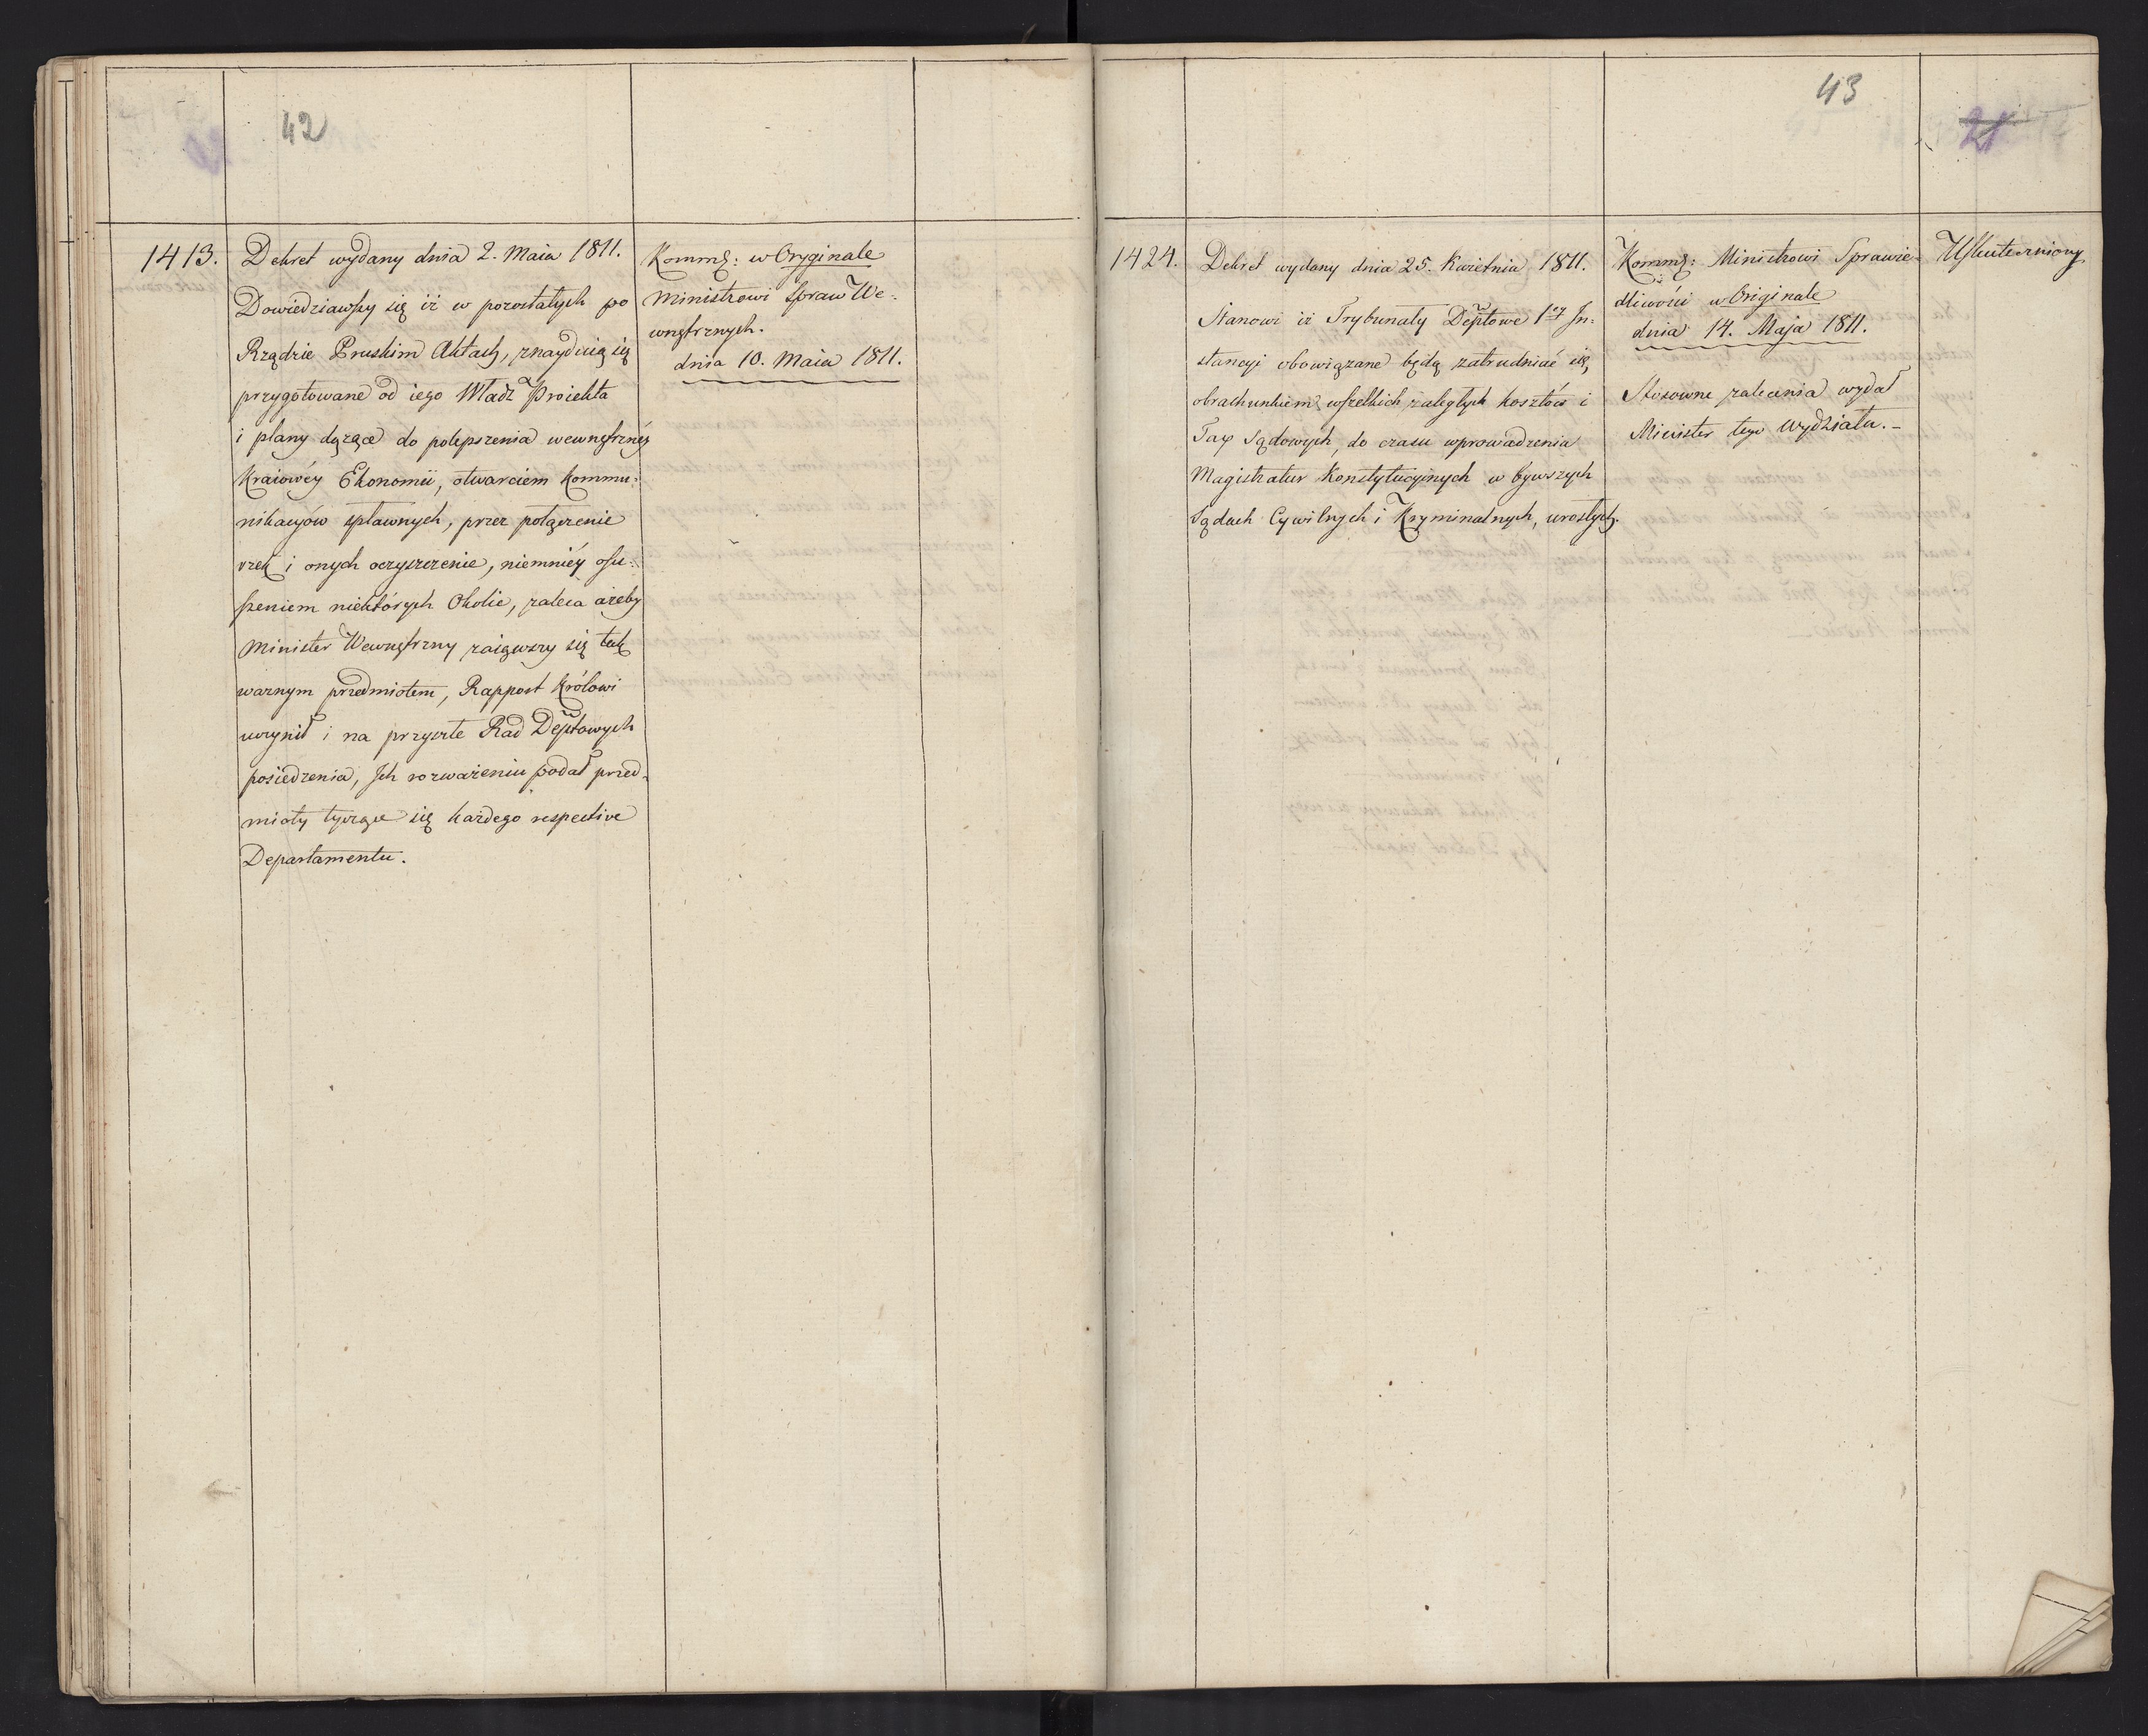 42
1413.
Dekret wydany dnia 2. Maia 1811.
Dowiedziawszy się iż w pozostałych po
Rządzie Pruskim Aktach, znayduią się
przygotowane od iego Władz Proiekta
i plany dążące do polepszenia wewnętrznéy
Kraiowéy Ekonomii, otwarciem Kommu:
nikacyów spławnych, przez połączenie
rzek i onych oczyszczenie, niemniéy osu:
szeniem niektórych Okolic, zaleca ażeby
Minister Wewnętrzny zaiąwszy się tak
ważnym przedmiotem, Rapport Królowi
uczynił i na przyszłe Rad Deptowych
posiedzenia, Ich rozważeniu podał przed-
mioty tyczące się każdego respective
Departamentu.
Kommę: w Oryginale
Ministrowi Spraw We-
wnętrznych.
dnia 10. Maia 1811.
43
21
1424.
Dekret wydany dnia 25. Kwietnia 1811.
Stanowi iż Trybunały Deptowe 1ey In:
stancyi obowiązane będą zatrudniać się,
obrachunkiem wszelkich zaległych kosztów i
Tax Sądowych, do czasu wprowadzenia
Magistratur Konstytucyinych w bywszych
Sądach Cywilnych i Kryminalnych, urosłych.
Kommę: Ministrowi Sprawie-
dliwości w Originale
dnia 14. Maja 1811.
Stosowne zalecenia wydał
Minister tego Wydziału.-
Uskuteczniony